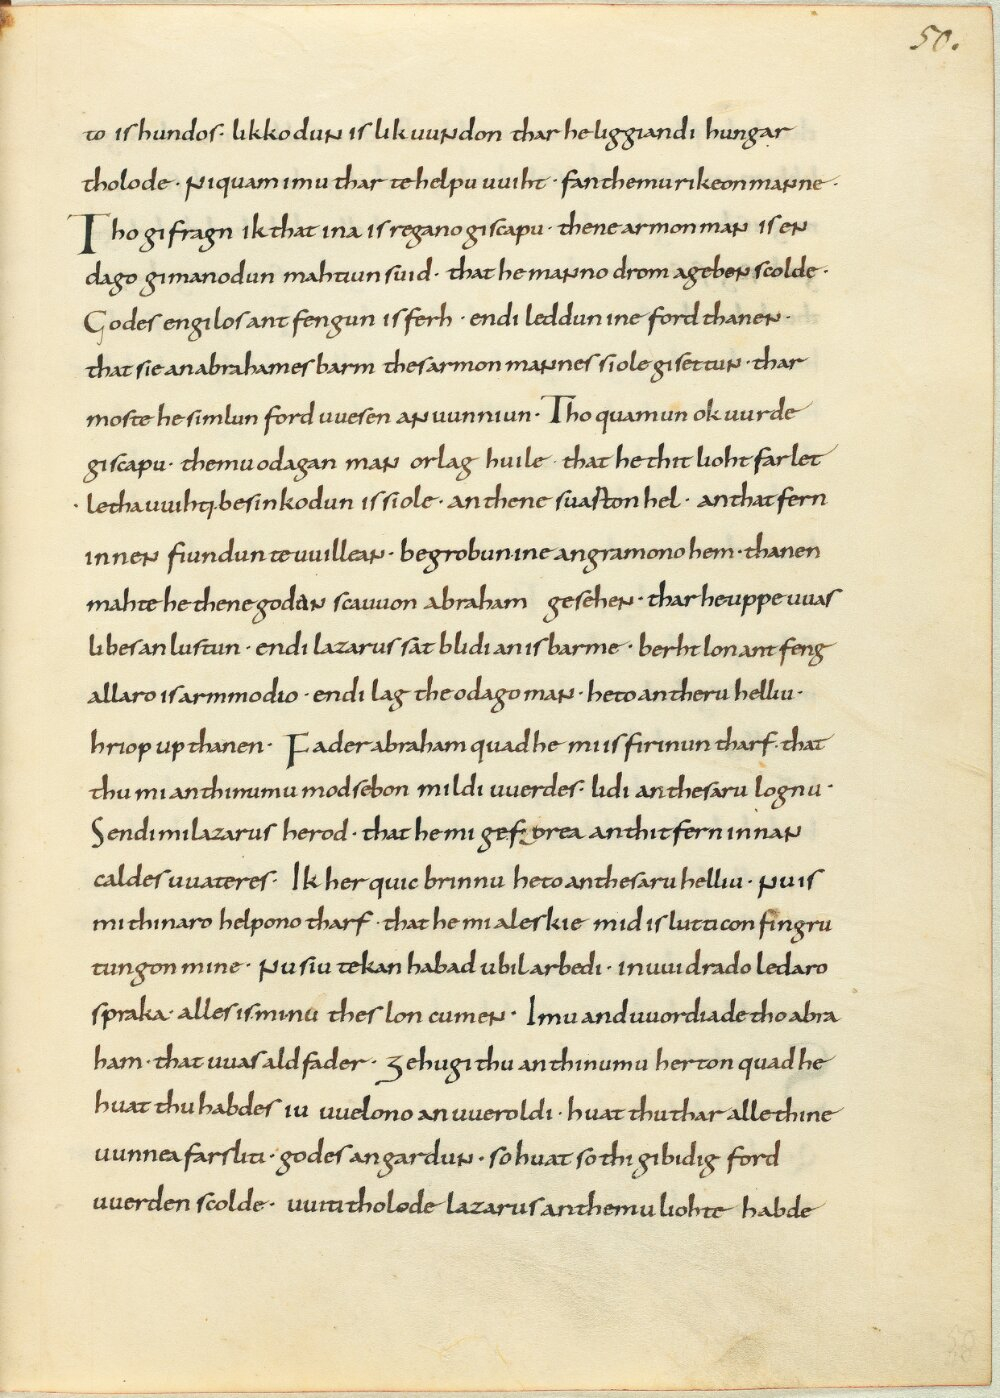 50.
to is hundos· likkodun is likuundon thar he liggiandi hungar
tholode· Niquam imu thar te helpu uuiht· fan themu rikeon manne·
Tho gifragn ik that ina is reganogiscapu· thene armon man is en
dago gimanodun mahtiun suid· that he manno drom ageben scolde·
Godes engilos antfengun is ferh· endi leddun ine ford thanen·
that sie an abrahames barm thes armon mannes siole gisettun· thar
moste he simlun ford uuesen an uunniun· Tho quamun ok uurde
giscapu· themu odagan man orlaghuile that he thit lioht farlet
· letha uuihti besinkodun is siole· an thene suarton hel· an that fern
innen fiundun te uuillean· begrobun ine an gramono hem· thanen
mahte he thene godan scauuon abraham gesehen· thar he uppe uuas
libes an lustun· endi lazarus sat blidi an is barme· berht lon antfeng
allaro is armmodio· endi lag the odago man· heto an theru helliu·
hriop up thanen· Fader abraham quad he mi is firinun tharf· that
thu mi an thinumu modsebon mildi uuerdes· lidi an thesaru lognu·
Sendi mi lazarus herod· that he mi geforea an thit fern innan
caldes uuateres· Ik her quic brinnu heto an thesaru helliu· Nu is
mi thinaro helpono tharf· that he mi aleskie mid is lutticon fingru
tungon mine· Nu siu tekan habad ubil arbedi· inuuidrado ledaro
spraka· alles is minu thes lon cumen· Imu anduuordiade tho abra
ham· that uuas aldfader· Gehugi thu an thinumu herton quad he
huat thu habdes iu uuelono an uueroldi· huat thu thar alle thine
uunnea farsliti· godes an gardun· so huat so thi gibidig ford
uuerden scolde· uuiti tholode lazarus an themu liohte habde